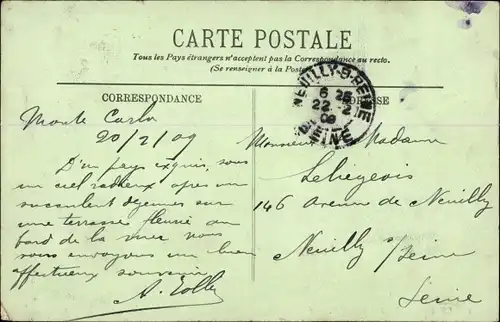 CARTE POSTALE
Tous les Pays étrangers n'acceptent pas la Correspondance au recto.
(Se renseigner à la Poste
CORRESPONDANCE
NEUILLY-S-SEINE
6 25
22 - 2
09
SEINE
ADRESSE
Monte Carlo
20/2/09
D'un pays exquis, sous
un ciel radieux après un
succulent déjeuner sur
une terrasse fleurie au
bord de la mer nous
vous envoyons un bien
affectueux souvenir
Monsieur Madame
Seliegeois
146 Avenue de Neuilly
Neuilly s/Seine
Seine